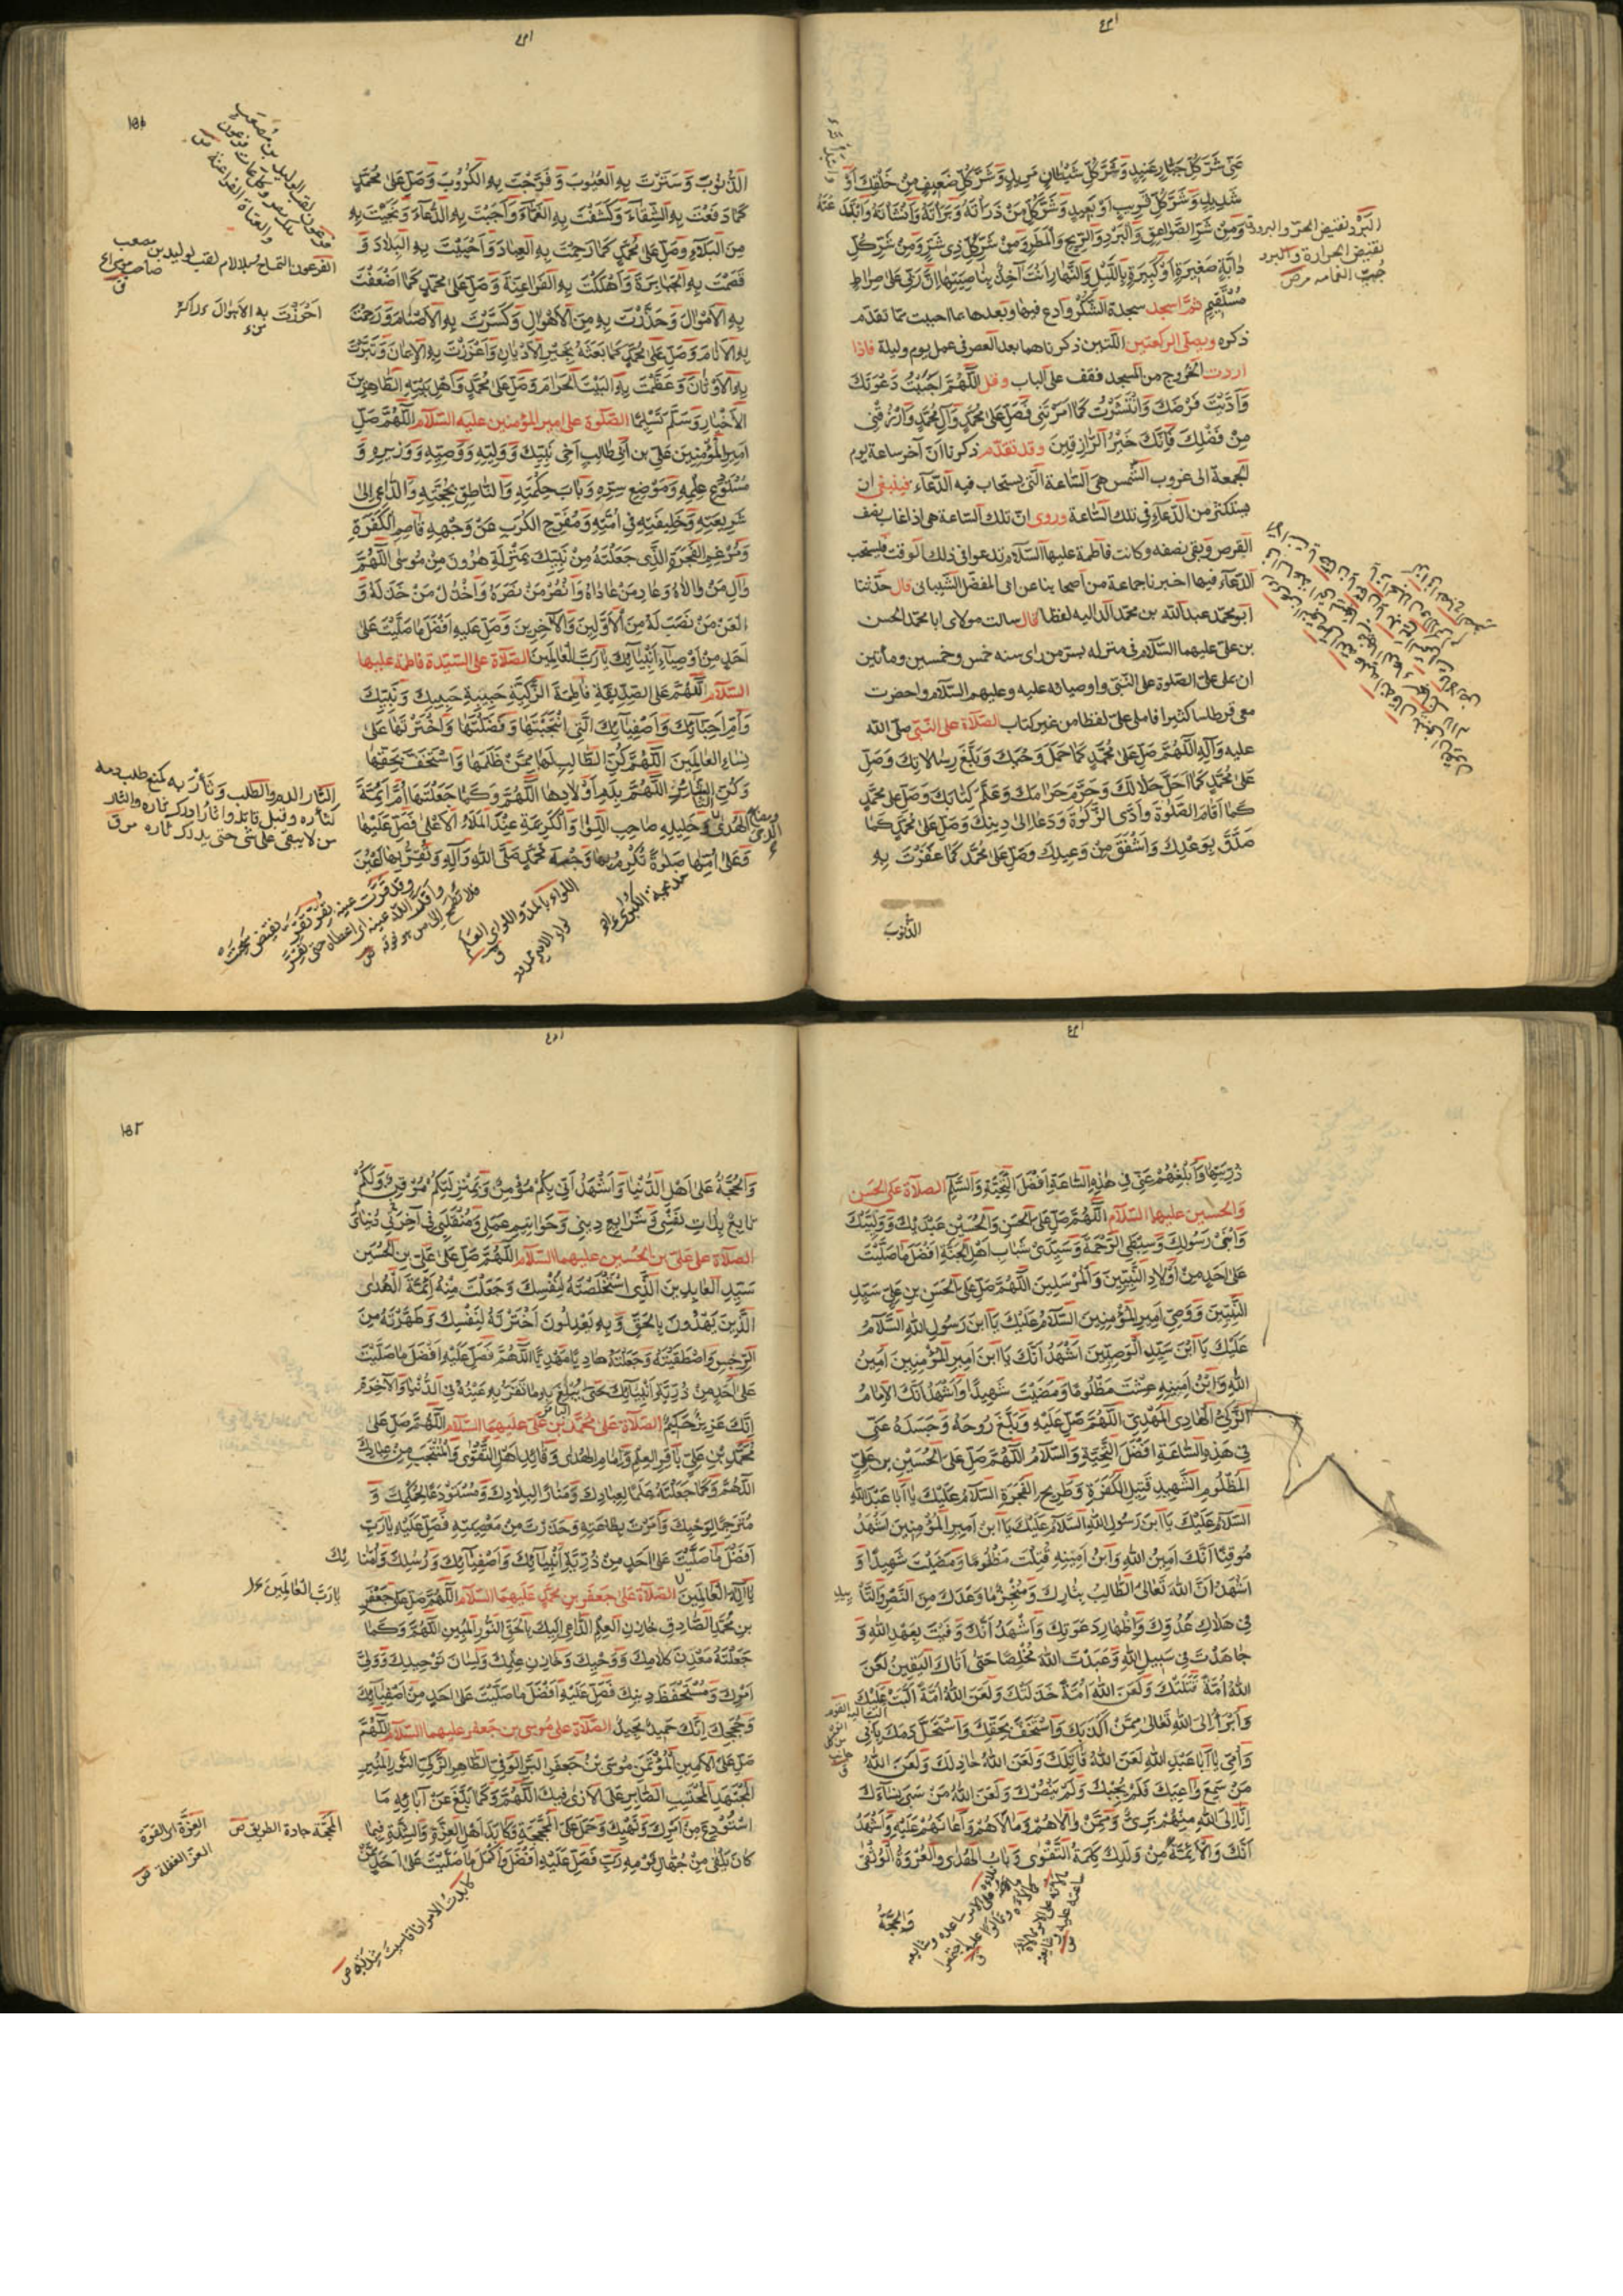 عَنّي شَرَّ كُلِّ جَبّارٍ عَنيدٍ وَشَرَّ كُلِّ شَيْطانٍ مَريدٍ وَشَرَّ كُلِّ ضَعيفٍ مِنْ خَلْقِكَ اَوْ
شَديدٍ وَشَرَّ كُلِّ قَريبٍ اَوْ بَعيدٍ وَشَرَّ كُلِّ مَنْ ذَرَأتَهُ وَبَرَأتَهُ وَاَنْشَأتَهُ وَابْتَدَعْتَهُ
وَمِنْ شَرِّ الصَّواعِقِ وَالْبَرْدِ وَالرّيحِ وَالْمَطَرِ وَمِنْ شَرِّ كُلِّ ذي شَرٍّ وَمِنْ شَرِّ كُلِّ
دابَّةٍ صَغيرَةٍ اَوْ كَبيرَةٍ بِاللَّيْلِ وَالنَّهارِ اَنْتَ آخِذٌ بِناصِيَتِها اِنَّ رَبّي عَلى صِراطٍ
مُسْتَقيمٍ ثمّ اسجد سجدة الشكر وادع فيها وبعدها بما احببت ممّا تقدّم
ذكره ويصلّى الركعتين اللتين ذكرناهما بعد العصر فى عمل يوم وليلة فاذا
اردت الخروج من المسجد فقف على الباب وقل اَللّهُمَّ اَجَبْتُ دَعْوَتَكَ
وَاَدَّيْتُ فَرْضَكَ وَانْتَشَرْتُ كَما اَمَرْتَني فَصَلِّ عَلى مُحَمَّدٍ وَآلِ مُحَمَّدٍ وَارْزُقْني
مِنْ فَضْلِكَ فَاِنَّكَ خَيْرُ الرّازِقينَ وقد تقدّم ذكرنا انّ آخر ساعة يوم
الجمعة الى غروب الشمس هى الساعة التى يستجاب فيه الدعاء فينبغى ان
يستكثر من الدعاء فى تلك الساعة وروى انّ تلك الساعة هى اذا غاب نصف
القرص وبقى نصفه وكانت فاطمة عليها السلام تدعو فى ذلك الوقت فيستحب
الدعاء فيها اخبرنا جماعة من اصحابنا عن ابى المفضل الشيبانى قال حدّثنا
ابو محمد عبدالله بن محمد الداليه لفظا قال سالت مولاى ابا محمد الحسن
بن على عليهما السلام فى منزله بسرّ من راى سنه خمس وخمسين ومأتين
ان يملى علىّ الصلوة على النبى واوصيائه عليه وعليهم السلام واحضرت
معى قرطاسا كثيرا فاملى علىّ لفظا من غير كتاب الصلاة على النبى صلى الله
عليه وآله اَللّهُمَّ صَلِّ عَلى مُحَمَّدٍ كَما حَمَلَ وَحْيَكَ وَبَلَّغَ رِسالاتِكَ وَصَلِّ
عَلى مُحَمَّدٍ كَما اَحَلَّ حَلالَكَ وَحَرَّمَ حَرامَكَ وَعَلَّمَ كِتابَكَ وَصَلِّ عَلى مُحَمَّدٍ
كَما اَقامَ الصَّلوةَ وَآدَى الزَّكوةَ وَدَعا اِلى دينِكَ وَصَلِّ عَلى مُحَمَّدٍ كَما
صَدَّقَ بِوَعْدِكَ وَاَشْفَقَ مِنْ وَعيدِكَ وَصَلِّ عَلى مُحَمَّدٍ كَما غَفَرْتَ بِهِ
الذُّنُوبَ
البرد نقيض الحرّ والبرودة
نقيض الحرارة والبرد
حبّ الغمام ص
١٥١
الذُّنُوبَ وَسَتَرْتَ بِهِ الْعُيُوبَ وَفَرَّجْتَ بِهِ الْكُرُوبَ وَصَلِّ عَلى مُحَمَّدٍ
كَما دَفَعْتَ بِهِ الشَّقاءَ وَكَشَفْتَ بِهِ الْغَمّاءَ وَاَجَبْتَ بِهِ الدُّعاءَ وَنَجَّيْتَ بِهِ
مِنَ الْبَلاءِ وَصَلِّ عَلى مُحَمَّدٍ كَما رَحِمْتَ بِهِ الْعِبادَ وَاَحْيَيْتَ بِهِ الْبِلادَ وَ
قَصَمْتَ بِهِ الْجَبابِرَةَ وَاَهْلَكْتَ بِهِ الْفَراعِنَةَ وَصَلِّ عَلى مُحَمَّدٍ كَما اَضْعَفْتَ
بِهِ الْاَمْوالَ وَحَذَّرْتَ بِهِ مِنَ الْاَهْوالِ وَكَسَرْتَ بِهِ الْاَصْنامَ وَرَحِمْتَ
بِهِ الْاَنامَ وَصَلِّ عَلى مُحَمَّدٍ كَما بَعَثْتَهُ بِخَيْرِ الْاَدْيانِ وَاَعْزَزْتَ بِهِ الْايمانَ وَتَبَّرْتَ
بِهِ الْاَوْثانَ وَعَظَّمْتَ بِهِ الْبَيْتَ الْحَرامَ وَصَلِّ عَلى مُحَمَّدٍ وَاَهْلِ بَيْتِهِ الطّاهِرينَ
الْاَخْيارِ وَسَلِّمْ تَسْليمًا الصلوة على امير المؤمنين عليه السلام اَللّهُمَّ صَلِّ
اَميرِ الْمُؤْمِنينَ عَلِيِّ بن اَبي طالِبٍ اَخي نَبِيِّكَ وَوَلِيِّهِ وَوَصِيِّهِ وَوَزيرِهِ وَ
مُسْتَوْدَعِ عِلْمِهِ وَمَوْضِعِ سِرِّهِ وَبابِ حِكْمَتِهِ وَالنّاطِقِ بِحُجَّتِهِ وَالدّاعي اِلى
شَريعَتِهِ وَخَليفَتِهِ في اُمَّتِهِ وَمُفَرِّجِ الْكَرْبِ عَنْ وَجْهِهِ قاصِمِ الْكَفَرَةِ
وَمُرْغِمِ الْفَجَرَةِ الَّذي جَعَلْتَهُ مِنْ نَبِيِّكَ بِمَنْزِلَةِ هرُونَ مِنْ مُوسى اَللّهُمَّ
والِ مَنْ والاهُ وَعادِ مَنْ عاداهُ وَانْصُرْ مَنْ نَصَرَهُ وَاخْذُلْ مَنْ خَذَلَهُ وَ
الْعَنْ مَنْ نَصَبَ لَهُ مِنَ الْاَوَّلينَ وَالْآخِرينَ وَصَلِّ عَلَيْهِ اَفْضَلَ ما صَلَّيْتَ عَلى
اَحَدٍ مِنْ اَوْصِياءِ اَنْبِيائِكَ يا رَبَّ الْعالَمينَ الصلاة على السيّدة فاطمة عليها
السلام اَللّهُمَّ صَلِّ عَلَى الصِّدّيقَةِ فاطِمَةَ الزَّكِيَّةِ حَبيبَةِ حَبيبِكَ وَنَبِيِّكَ
وَاُمِّ اَحِبّائِكَ وَاَصْفِيائِكَ الَّتي انْتَجَبْتَها وَفَضَّلْتَها وَاخْتَرْتَها عَلى
نِساءِ الْعالَمينَ اَللّهُمَّ كُنِ الطّالِبَ لَها مِمَّنْ ظَلَمَها وَاسْتَخَفَّ بِحَقِّها
وَكُنِ الثّائِرَ اَللّهُمَّ بِدَمِ اَوْلادِها اَللّهُمَّ وَكَما جَعَلْتَها اُمَّ اَئِمَّةِ
الْهُدى وَحَليلَةَ صاحِبِ اللِّواءِ وَالْكَريمَةَ عِنْدَ الْمَلَأِ الْاَعْلى فَصَلِّ عَلَيْها
وَعَلى اُمِّها صَلوةً تُكْرِمُ بِها وَجْهَ مُحَمَّدٍ صَلَّى اللهُ وَآلِهِ وَتُقِرُّ بِها اَعْيُنَ
الفرعون التمساح وبلا لام لقب لوليد بن مصعب
صاحب موسى ع
ق
الثار الدم والطلب وثأر به كمنع طلب دمه
كثأره وقتل قاتله واثأر ادرك ثاره والثائر
من لا يبقى على شى حتى يدرك ثاره ق
ذُرِّيَّتِها وَاَبْلِغْهُمْ عَنّي في هذِهِ السّاعَةِ اَفْضَلَ التَّحِيَّةِ وَالسَّلامِ الصلاة على الحسن
والحسين عليهما السلام اَللّهُمَّ صَلِّ عَلَى الْحَسَنِ وَالْحُسَيْنِ عَبْدَيْكَ وَوَلِيَّيْكَ
وَابْنَيْ رَسُولِكَ وَسِبْطَيِ الرَّحْمَةِ وَسَيِّدَيْ شَبابِ اَهْلِ الْجَنَّةِ اَفْضَلَ ما صَلَّيْتَ
عَلى اَحَدٍ مِنْ اَوْلادِ النَّبِيّينَ وَالْمُرْسَلينَ اَللّهُمَّ صَلِّ عَلَى الْحَسَنِ بنِ عَلِيٍّ سَيِّدِ
النَّبِيّينَ وَوَصِيِّ اَميرِ الْمُؤْمِنينَ السَّلامُ عَلَيْكَ يَا ابْنَ رَسُولِ اللهِ السَّلامُ
عَلَيْكَ يَا ابْنَ سَيِّدِ الْوَصِيّينَ اَشْهَدُ اَنَّكَ يَا ابْنَ اَميرِ الْمُؤْمِنينَ اَمينُ
اللهِ وَابْنُ اَمينِهِ عِشْتَ مَظْلُومًا وَمَضَيْتَ شَهيدًا وَاَشْهَدُ اَنَّكَ الْاِمامُ
الزَّكِيُّ الْهادِي الْمَهْدِيُّ اَللّهُمَّ صَلِّ عَلَيْهِ وَبَلِّغْ رُوحَهُ وَجَسَدَهُ عَنّي
في هذِهِ السّاعَةِ اَفْضَلَ التَّحِيَّةِ وَالسَّلامُ اَللّهُمَّ صَلِّ عَلَى الْحُسَيْنِ بنِ عَلِيٍّ
الْمَظْلُومِ الشَّهيدِ قَتيلِ الْكَفَرَةِ وَطَريحِ الْفَجَرَةِ السَّلامُ عَلَيْكَ يا اَبا عَبْدِ اللهِ
السَّلامُ عَلَيْكَ يَا ابْنَ رَسُولِ اللهِ السَّلامُ عَلَيْكَ يَا ابْنَ اَميرِ الْمُؤْمِنينَ اَشْهَدُ
مُوقِنًا اَنَّكَ اَمينُ اللهِ وَابْنُ اَمينِهِ قُتِلْتَ مَظْلُومًا وَمَضَيْتَ شَهيدًا وَ
اَشْهَدُ اَنَّ اللهَ تَعالى الطّالِبُ بِثارِكَ وَمُنْجِزٌ ما وَعَدَكَ مِنَ النَّصْرِ وَالتَّأْييدِ
في هَلاكِ عَدُوِّكَ وَاِظْهارِ دَعْوَتِكَ وَاَشْهَدُ اَنَّكَ وَفَيْتَ بِعَهْدِ اللهِ وَ
جاهَدْتَ في سَبيلِ اللهِ وَعَبَدْتَ اللهَ مُخْلِصًا حَتّى اَتاكَ الْيَقينُ لَعَنَ
اللهُ اُمَّةً قَتَلَتْكَ وَلَعَنَ اللهُ اُمَّةً خَذَلَتْكَ وَلَعَنَ اللهُ اُمَّةً اَلَّبَتْ عَلَيْكَ
وَاَبْرَأُ اِلَى اللهِ تَعالى مِمَّنْ اَكْذَبَكَ وَاسْتَخَفَّ بِحَقِّكَ وَاسْتَحَلَّ دَمَكَ بِاَبي
وَاُمّي يا اَبا عَبْدِ اللهِ لَعَنَ اللهُ قاتِلَكَ وَلَعَنَ اللهُ خاذِلَكَ وَلَعَنَ اللهُ
مَنْ سَمِعَ واعِيَتَكَ فَلَمْ يُجِبْكَ وَلَمْ يَنْصُرْكَ وَلَعَنَ اللهُ مَنْ سَبى نِساءَكَ
اَنَا اِلَى اللهِ مِنْهُمْ بَريءٌ وَمِمَّنْ والاهُمْ وَمالَاَهُمْ وَاَعانَهُمْ عَلَيْهِ وَاَشْهَدُ
اَنَّكَ وَالْاَئِمَّةَ مِنْ وُلْدِكَ كَلِمَةُ التَّقْوى وَبابُ الْهُدى وَالْعُرْوَةُ الْوُثْقى
وَالْحُجَّةُ
١٥٢
وَالْحُجَّةُ عَلى اَهْلِ الدُّنْيا وَاَشْهَدُ اَنّي بِكُمْ مُؤْمِنٌ وَبِمَنْزِلَتِكُمْ مُوقِنٌ وَلَكُمْ
تابِعٌ بِذاتِ نَفْسي وَشَرايِعِ ديني وَخَواتيمِ عَمَلي وَمُنْقَلَبي في آخِرَتي دُنْيايَ
الصلاة على علىّ بن الحسين عليهما السلام اَللّهُمَّ صَلِّ عَلى عَلِيِّ بنِ الْحُسَيْنِ
سَيِّدِ الْعابِدينَ الَّذي اسْتَخْلَصْتَهُ لِنَفْسِكَ وَجَعَلْتَ مِنْهُ اَئِمَّةَ الْهُدى
الَّذينَ يَهْدُونَ بِالْحَقِّ وَبِهِ يَعْدِلُونَ اخْتَرْتَهُ لِنَفْسِكَ وَطَهَّرْتَهُ مِنَ
الرِّجْسِ وَاصْطَفَيْتَهُ وَجَعَلْتَهُ هادِيًا مَهْدِيًّا اَللّهُمَّ فَصَلِّ عَلَيْهِ اَفْضَلَ ما صَلَّيْتَ
عَلى اَحَدٍ مِنْ ذُرِّيَّةِ اَنْبِيائِكَ حَتّى يَبْلُغَ بِهِ ما تَقَرُّ بِهِ عَيْنُهُ فِي الدُّنْيا وَالْآخِرَةِ
اِنَّكَ عَزيزٌ حَكيمٌ الصلاة على محمّد بن علىّ الباقر عليهما السلام اَللّهُمَّ صَلِّ عَلى
مُحَمَّدِ بنِ عَلِيٍّ باقِرِ الْعِلْمِ وَاِمامِ الْهُدى وَقائِدِ اَهْلِ التَّقْوى وَالْمُنْتَجَبِ مِنْ عِبادِكَ
اَللّهُمَّ وَكَما جَعَلْتَهُ عَلَمًا لِعِبادِكَ وَمَنارًا لِبِلادِكَ وَمُسْتَوْدَعًا لِحِكْمَتِكَ وَ
مُتَرْجِمًا لِوَحْيِكَ وَاَمَرْتَ بِطاعَتِهِ وَحَذَّرْتَ مِنْ مَعْصِيَتِهِ فَصَلِّ عَلَيْهِ يا رَبِّ
اَفْضَلَ ما صَلَّيْتَ عَلى اَحَدٍ مِنْ ذُرِّيَّةِ اَنْبِيائِكَ وَاَصْفِيائِكَ وَرُسُلِكَ وَاُمَنائِكَ
يا اِلهَ الْعالَمينَ الصلاة على جعفر بن محمّد عليهما السلام اَللّهُمَّ صَلِّ عَلى جَعْفَرِ
بنِ مُحَمَّدٍ الصّادِقِ خازِنِ الْعِلْمِ الدّاعي اِلَيْكَ بِالْحَقِّ النُّورِ الْمُبينِ اَللّهُمَّ وَكَما
جَعَلْتَهُ مَعْدِنَ كَلامِكَ وَوَحْيِكَ وَخازِنَ عِلْمِكَ وَلِسانَ تَوْحيدِكَ وَوَلِيَّ
اَمْرِكَ وَمُسْتَحْفَظَ دينِكَ فَصَلِّ عَلَيْهِ اَفْضَلَ ما صَلَّيْتَ عَلى اَحَدٍ مِنْ اَصْفِيائِكَ
وَحُجَجِكَ اِنَّكَ حَميدٌ مَجيدٌ الصلاة على موسى بن جعفر عليهما السلام اَللّهُمَّ
صَلِّ عَلَى الْاَمينِ الْمُؤْتَمَنِ مُوسَى بْنِ جَعْفَرٍ الْبَرِّ الْوَفِيِّ الطّاهِرِ الزَّكِيِّ النُّورِ الْمُنيرِ
الْمُجْتَهِدِ الْمُحْتَسِبِ الصّابِرِ عَلَى الْاَذى فيكَ اَللّهُمَّ وَكَما بَلَّغَ عَنْ آبائِهِ مَا
اسْتُوْدِعَ مِنْ اَمْرِكَ وَنَهْيِكَ وَحَمَلَ عَلَى الْمَحَجَّةِ وَكابَدَ اَهْلَ الْعِزَّةِ وَالشِّدَّةِ فيما
كانَ يَلْقى مِنْ جُهّالِ قَوْمِهِ رَبِّ فَصَلِّ عَلَيْهِ اَفْضَلَ وَاَكْمَلَ ما صَلَّيْتَ عَلى اَحَدٍ
يا رَبَّ الْعالَمينَ
المحجّة جادة الطريق ص